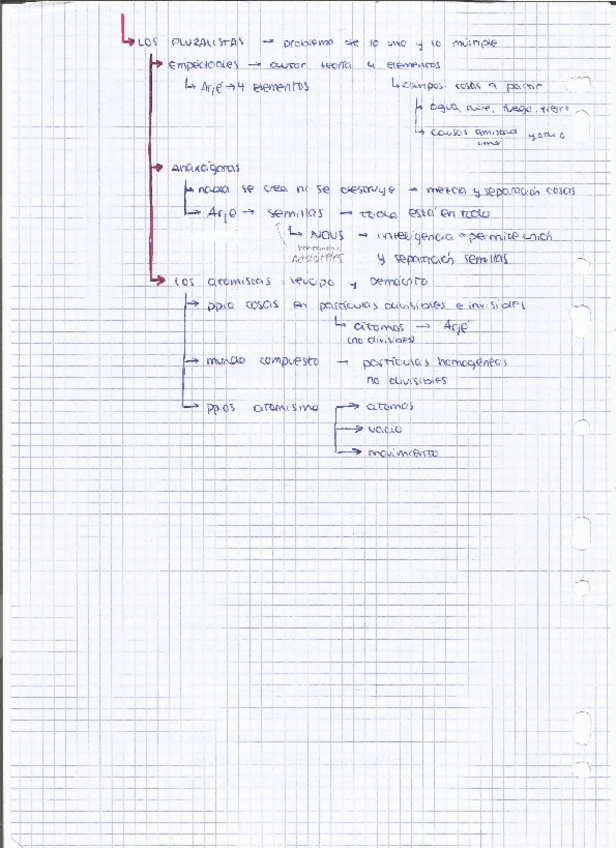 LOS PLURALISTAS → problema de lo uno y lo múltiple
Empédocles → autor teoría 4 elementos
Arjé → 4 elementos
compos. cosas a partir
agua, aire, fuego, tierra
causas amistad y odio
amor
Anaxágoras
nada se crea ni se destruye → mezcla y separación cosas
Arjé → semillas → todo está en todo
NOUS → inteligencia → permite unión
y separación semillas
Los atomistas: Leucipo y Demócrito
ppio cosas en partículas divisibles e invisibles
átomos → Arjé
(no divisibles)
mundo compuesto → partículas homogéneas
no divisibles
ppios atomismo → átomos
→ vacío
→ movimiento